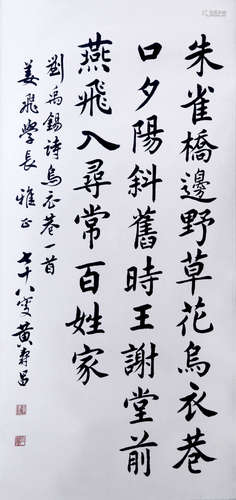 朱雀橋邊野草花烏衣巷
口夕陽斜舊時王謝堂前
燕飛入尋常百姓家
劉禹錫詩烏衣巷一首
姜飛學長雅正
七十八叟黃壽昌